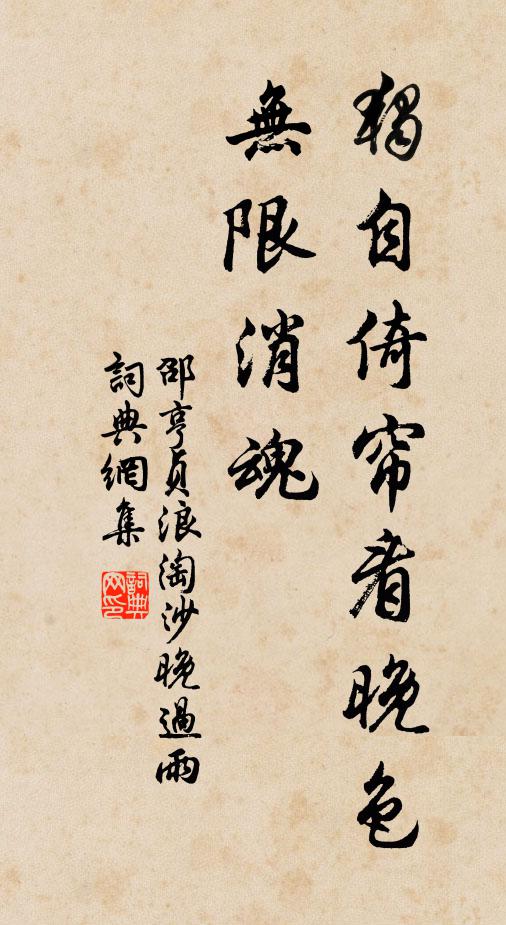 獨自倚帘看晚色
無限消魂
邵亨貞浪淘沙晚過雨
詞典網集
詞典网印